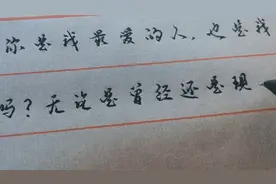 你是我最爱的人，也是我
吗？无论是曾经还是现